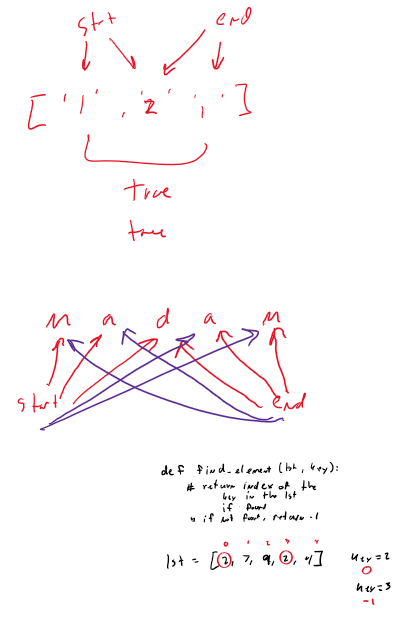 strt end
['1', '2', '1']
true
true
m a d a m
start end
def find_element(lst, key):
# return index of the
key in the lst
if found
if not found, return -1
0 1 2 3 4
lst = [2, 7, 9, 2, 4] key = 2
0
key = 3
-1